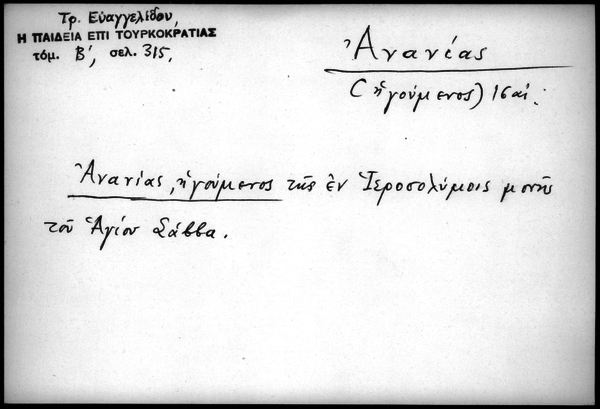 Τρ. Εὐαγγελίδου,
Η ΠΑΙΔΕΙΑ ΕΠΙ ΤΟΥΡΚΟΚΡΑΤΙΑΣ
τόμ. Β΄, σελ. 315,
Ἀνανέας
(ἡγούμενος) 16 αἰ.
Ἀνανίας, ἡγούμενος τῆς ἐν Ἱεροσολύμοις μονῆς
τοῦ Ἁγίου Σάββα.